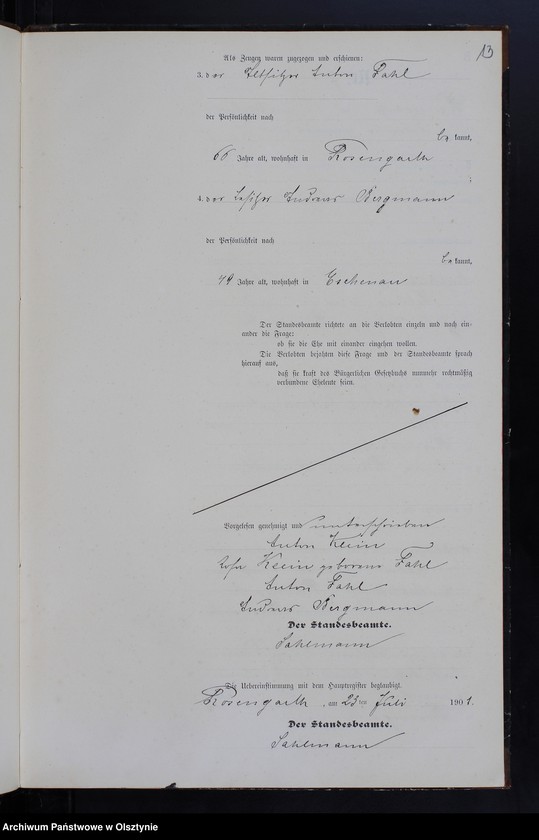 13
Als Zeugen waren zugezogen und erschienen:
3. der Altsitzer Anton Fahl
der Persönlichkeit nach
be kannt,
66 Jahre alt, wohnhaft in Rosengarth
4. der Besitzer Andreas Bergmann
der Persönlichkeit nach
be kannt,
49 Jahre alt, wohnhaft in Eschenau
Der Standesbeamte richtete an die Verlobten einzeln und nach ein-
ander die Frage:
ob sie die Ehe mit einander eingehen wollen.
Die Verlobten bejahten diese Frage und der Standesbeamte sprach
hierauf aus,
daß sie kraft des Bürgerlichen Gesetzbuchs nunmehr rechtmäßig
verbundene Eheleute seien.
Vorgelesen genehmigt und unterschrieben
Anton Klein
Rosa Klein geborene Fahl
Anton Fahl
Andreas Bergmann
Der Standesbeamte.
Sahlmann
Die Uebereinstimmung mit dem Hauptregister beglaubigt.
Rosengarth, am 23 ten Juli 1901.
Der Standesbeamte.
Sahlmann
Archiwum Państwowe w Olsztynie